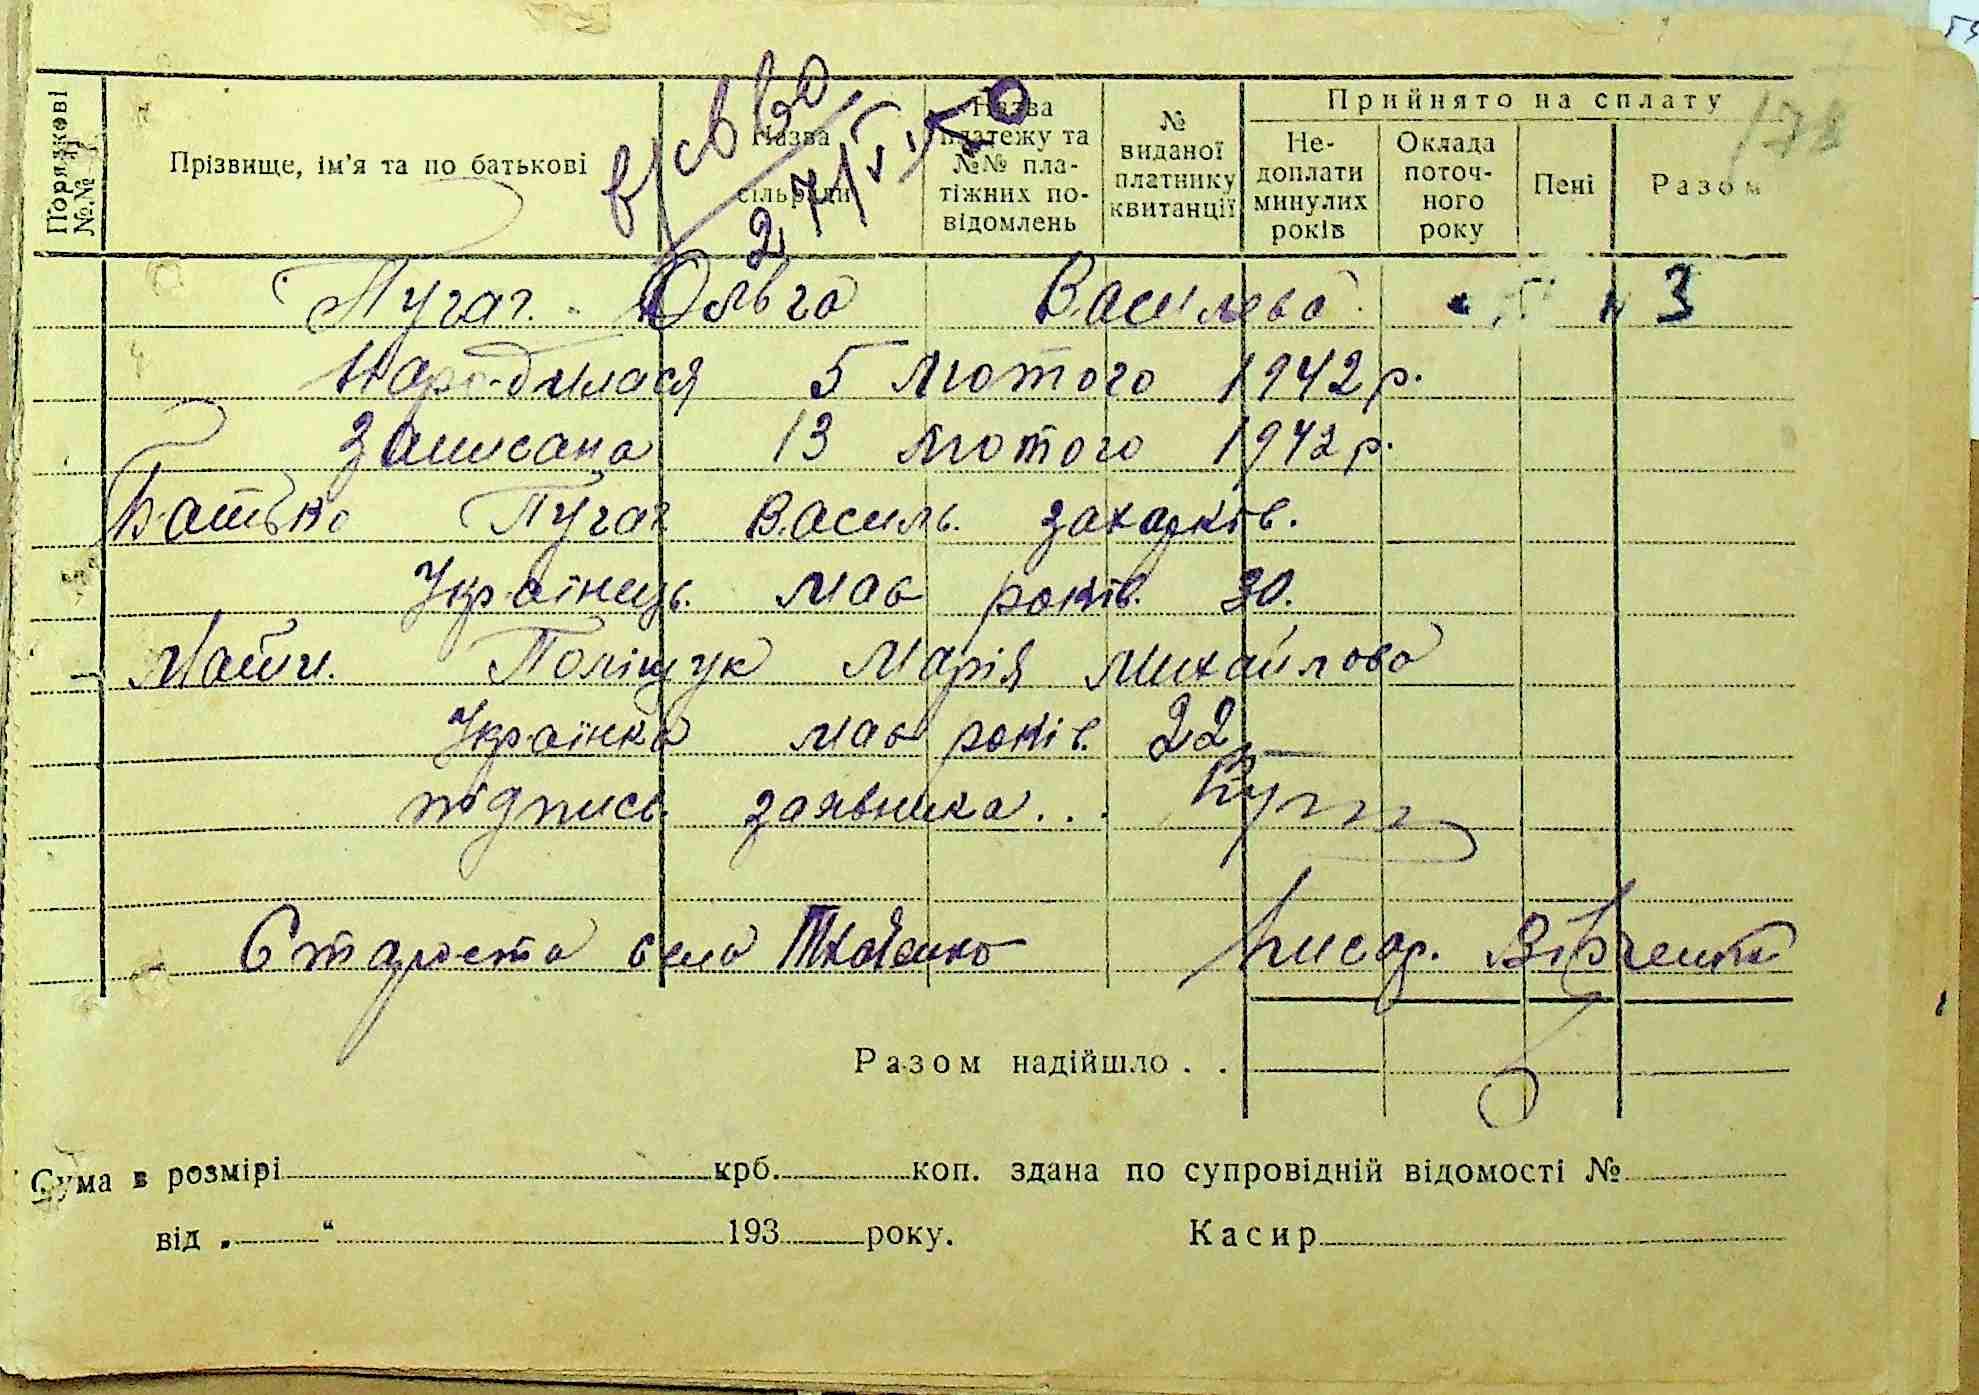 178
Порядкові №№
Прізвище, ім’я та по батькові
Назва сільради
Назва платежу та №№ пла-тіжних по-відомлень
№ виданої платнику квитанції
Прийнято на сплату
Не-доплати минулих років
Оклада поточ-ного року
Пені
Разом
в/св
27/V 50
Пугач. Ольга Василева. № 3
Народилася 5 лютого 1942 р.
Записана 13 лютого 1942 р.
Батько Пугач Василь. Захарків.
Українець. має років. 30.
Мати. Поліщук Марія Михайлова
Українка має років. 22
підпись. заявника...
Староста села Ткаченко Писар.
Разом надійшло . .
Сума в розмірі крб. коп. здана по супровідній відомості №
від „ “ 193 року. Касир